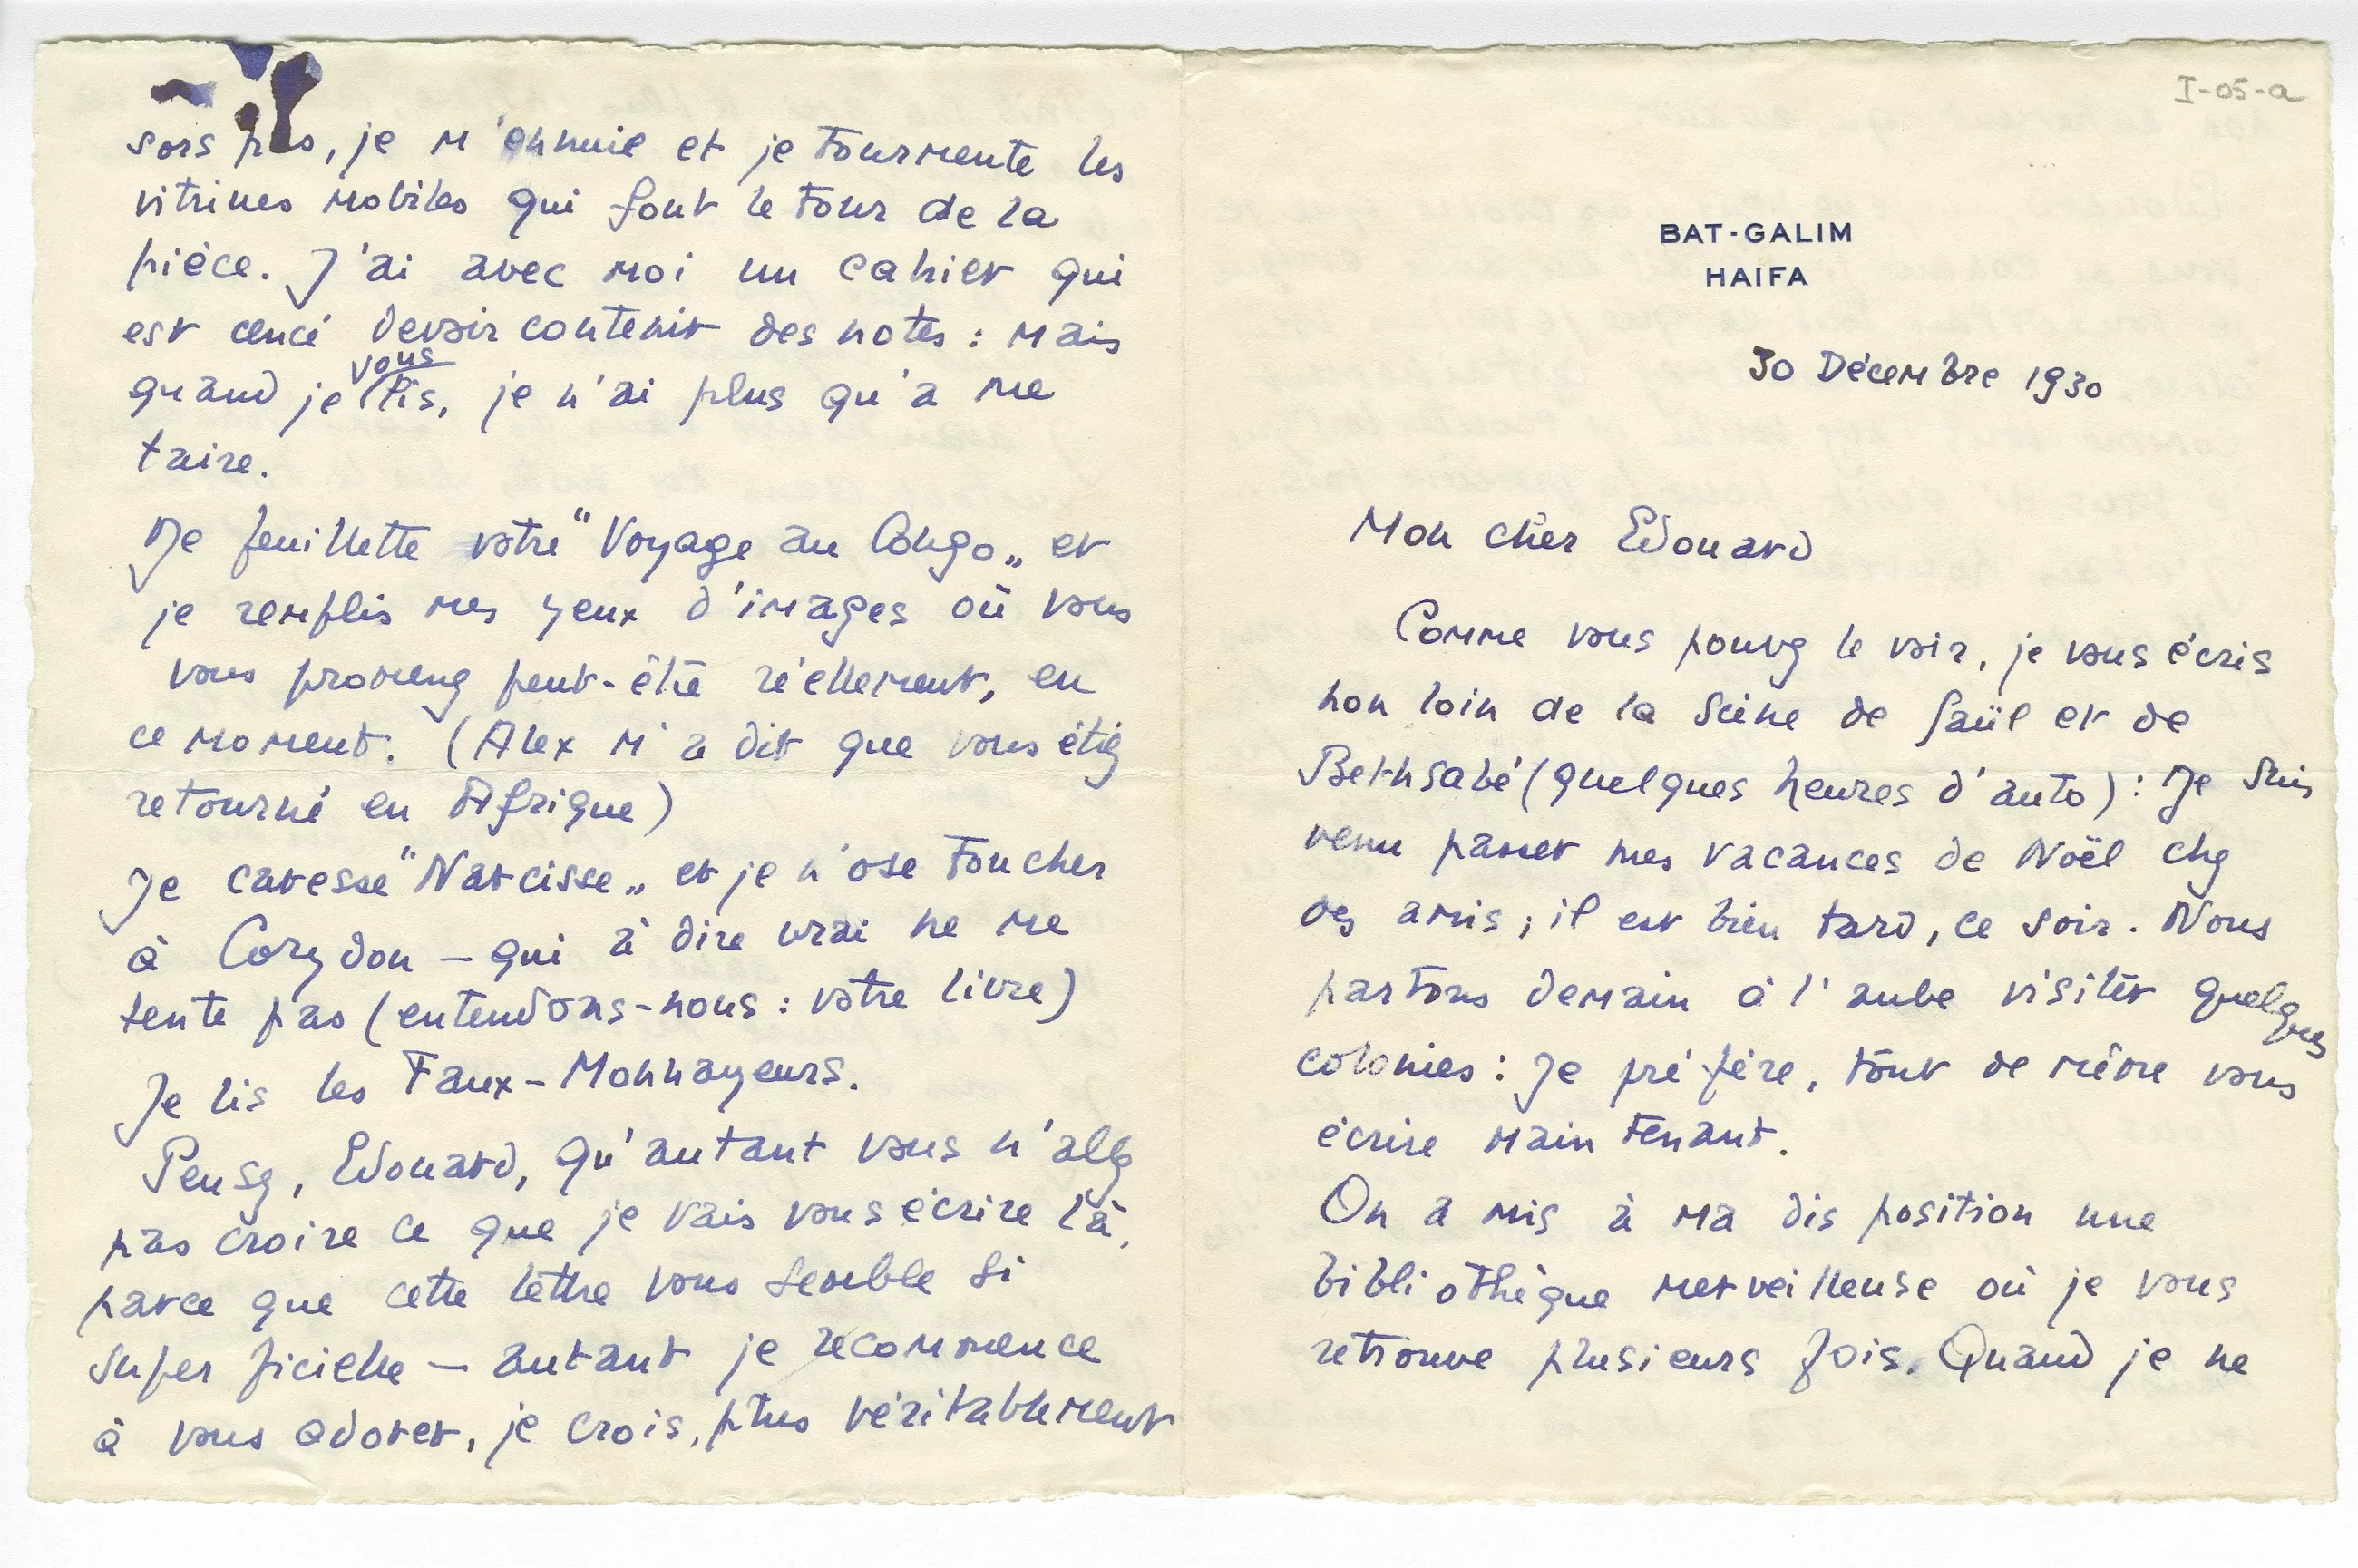 I-05-a
BAT-GALIM
HAIFA
30 Décembre 1930
Mon cher Edouard
Comme vous pouvez le voir, je vous écris
non loin de la scène de Saül et de
Bethsabé (quelques heures d'auto) : Je suis
venu passer mes vacances de Noël chez
des amis ; il est bien tard, ce soir. Nous
partons demain à l'aube visiter quelques
colonies : Je préfère, tout de même vous
écrire maintenant.
On a mis à ma disposition une
bibliothèque merveilleuse où je vous
retrouve plusieurs fois. Quand je ne
sors pas, je m'ennuie et je tourmente les
vitrines mobiles qui font le tour de la
pièce. J'ai avec moi un cahier qui
est cencé devoir contenir des notes : mais
quand je vous lis, je n'ai plus qu'a me
taire.
Je feuillette votre "Voyage au Congo„ et
je remplis mes yeux d'images où vous
vous promenez peut-être réellement, en
ce moment. (Alex m'a dit que vous étiez
retourné en Afrique)
Je caresse "Narcisse„ et je n'ose toucher
à Corydon – qui à dire vrai ne me
tente pas (entendons-nous : votre livre)
Je lis les Faux-Monnayeurs.
Pensez, Edouard, qu'autant vous n'allez
pas croire ce que je vais vous écrire là,
parce que cette lettre vous semble si
superficielle – autant je recommence
à vous adorer, je crois, plus véritablement